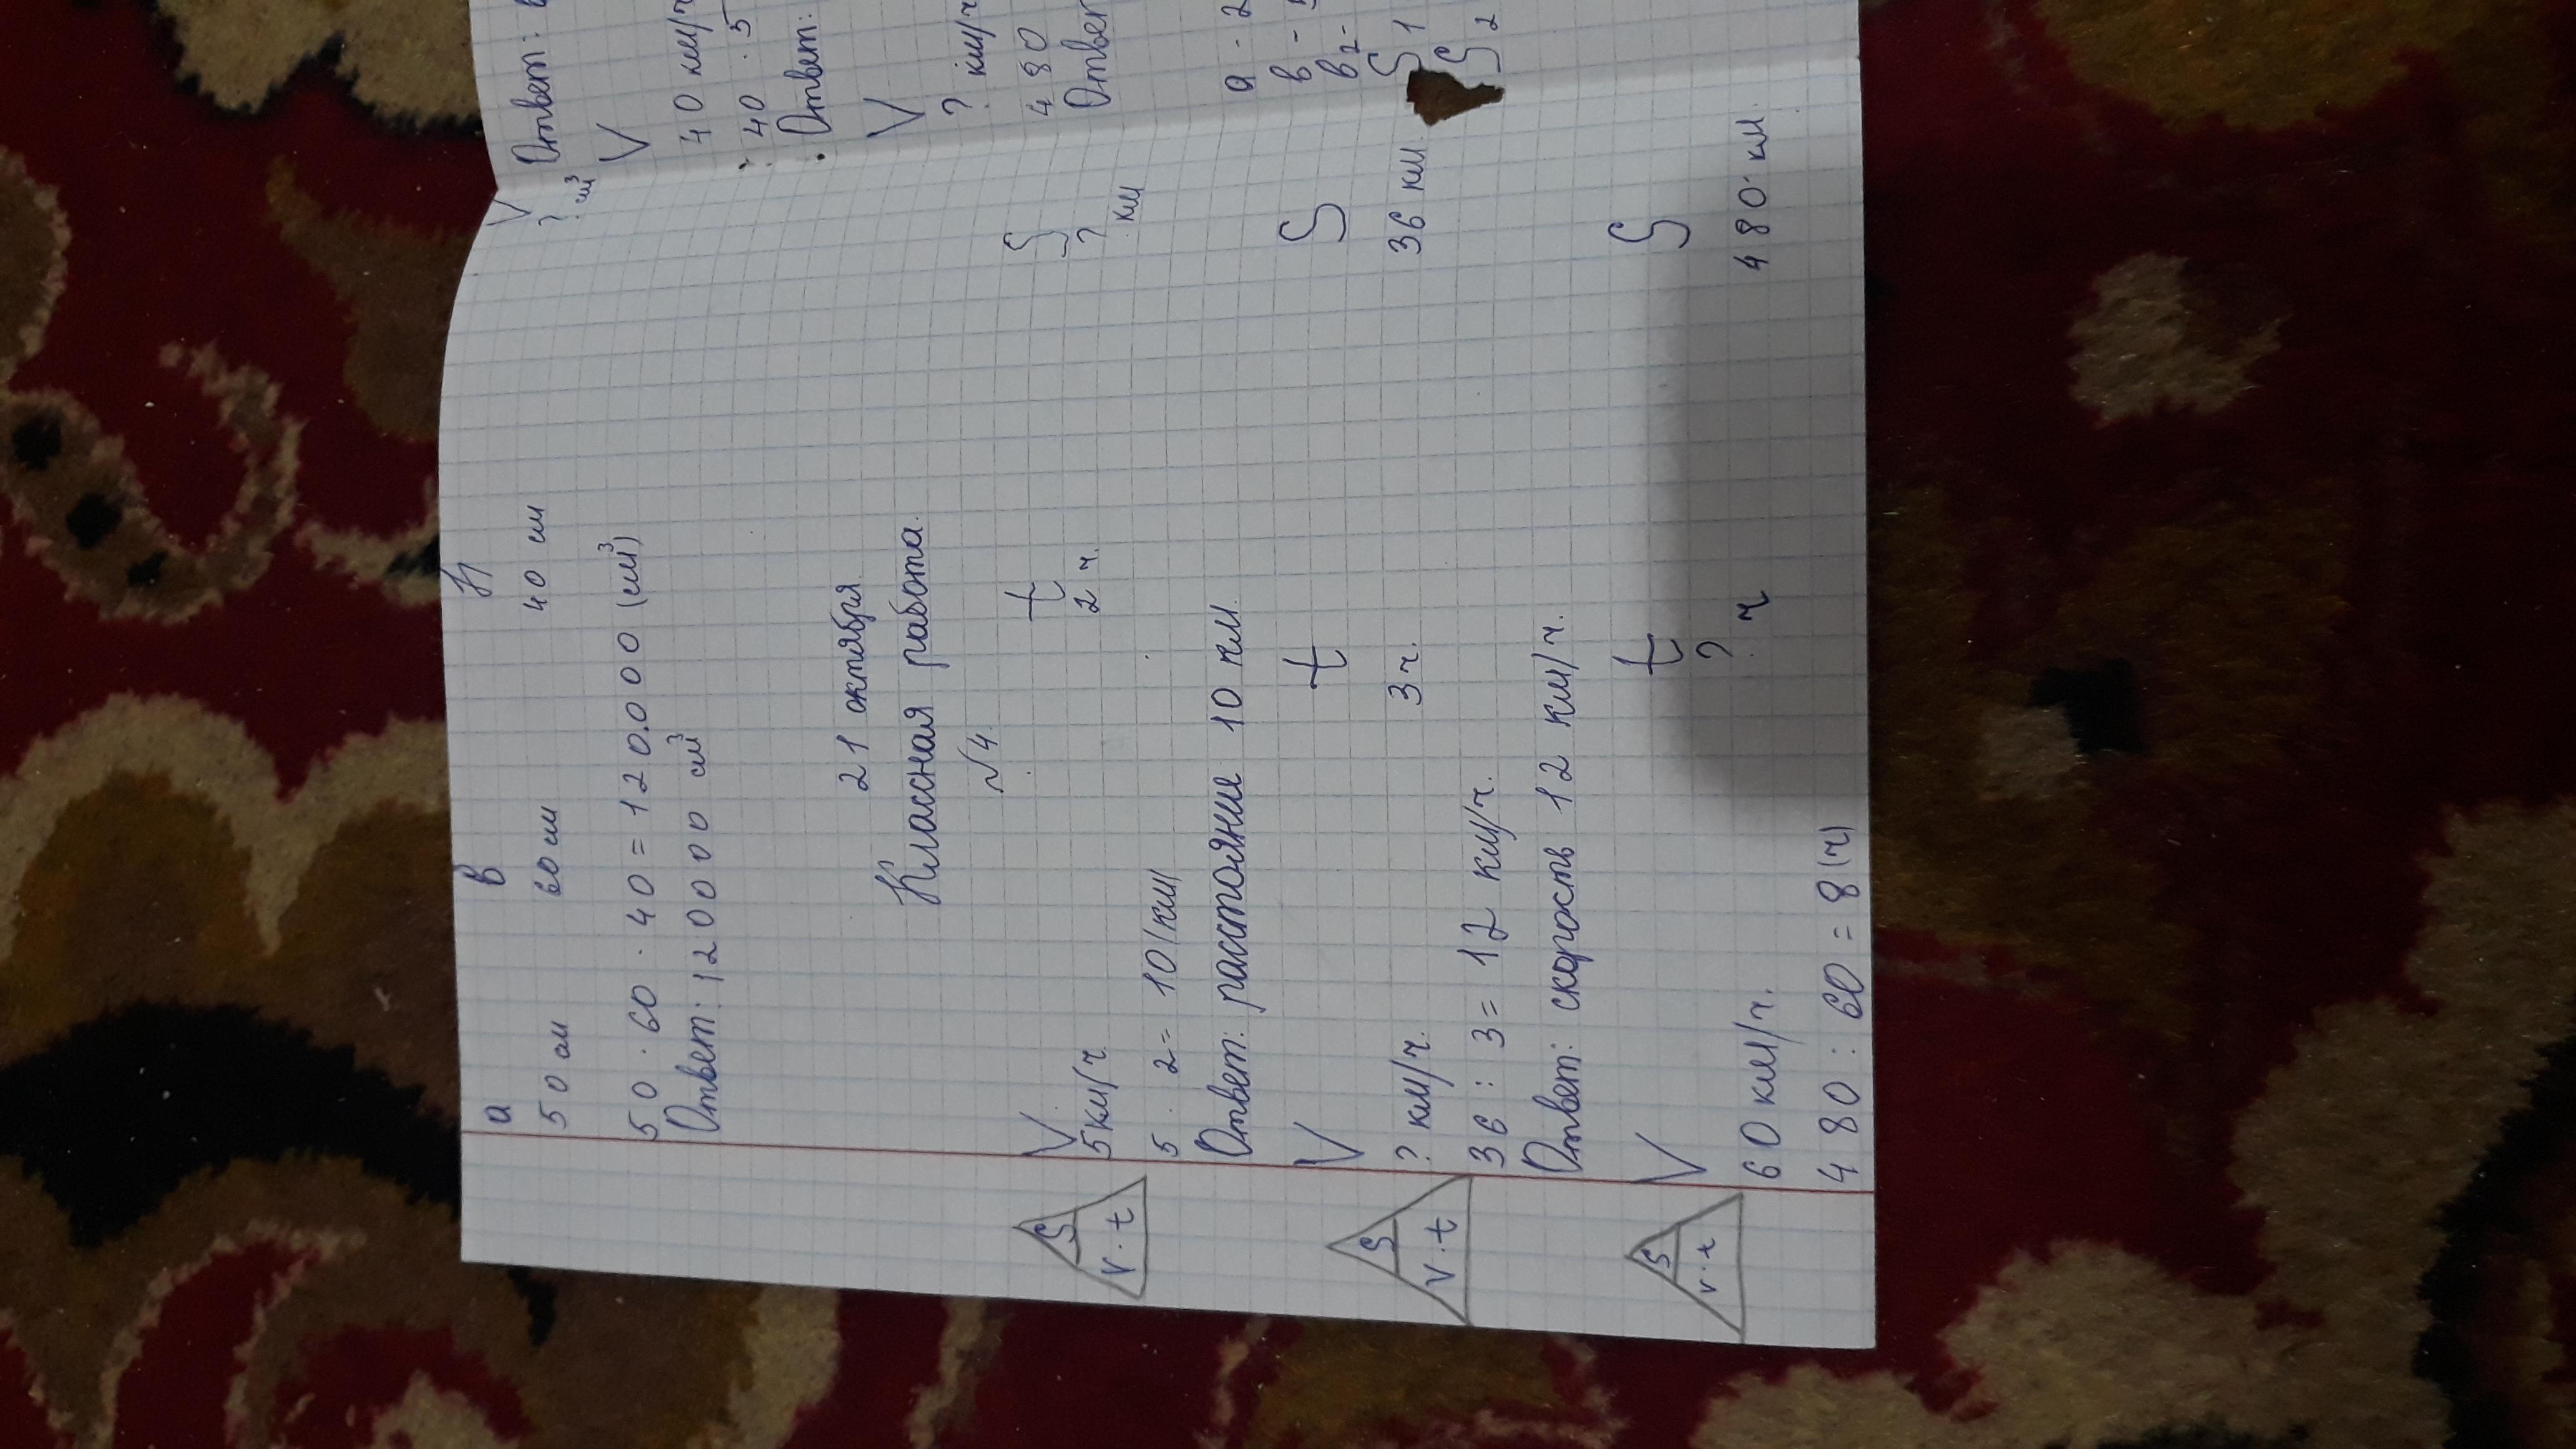 а в H V
50 см 60 см 40 см ? см³
50 · 60 · 40 = 120.000 (см³)
Ответ: 120000 см³
21 октября
Классная работа.
√4
V t S
5км/ч 2 ч. ? км
S
V · t
5 · 2 = 10 (км)
Ответ: расстояние 10 км.
V t S
? км/ч. 3 ч. 36 км
S
V · t
36 : 3 = 12 км/ч.
Ответ: скорость 12 км/ч.
V t S
60 км/ч. ? ч 480 км.
S
V · t
480 : 60 = 8 (ч)
Ответ:
V
40 км/ч
40 · 5
Ответ:
V
? км/ч
480
Ответ
а - 2
в -
в2 -
S1
S2